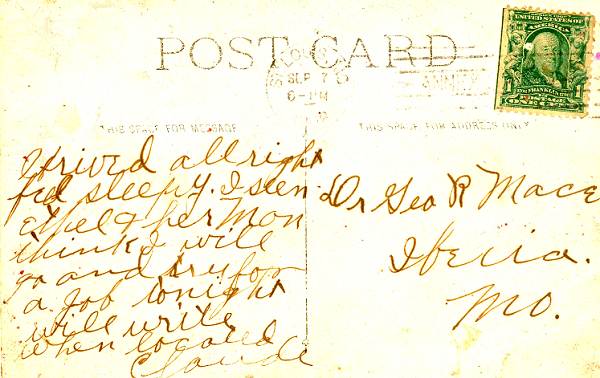 POST CARD
SEP 7
6-PM
UNITED STATES OF
AMERICA
1 FRANKLIN 1
POSTAGE
ONE CENT
THIS SPACE FOR MESSAGE
THIS SPACE FOR ADDRESS ONLY
Arrived allright
feel sleepy. I seen
Ethel & her Mon
think I will
go and try for
a job tonight
will write
when located
Claude
Dr Geo R Mace
Iberia.
Mo.